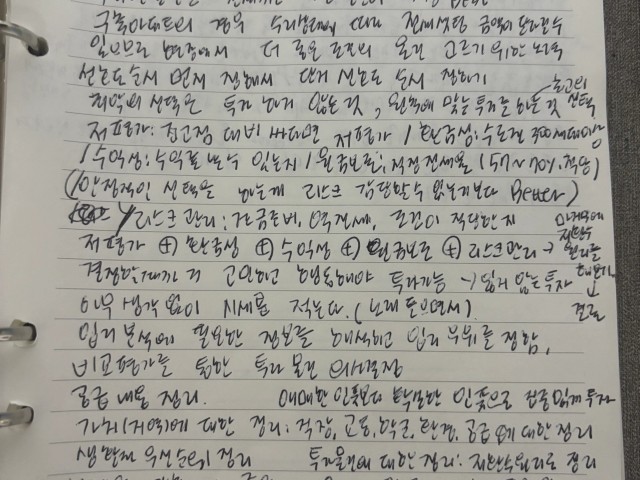 구축아파트의 경우 수리상태에 따라 전세셋팅 금액이 달라질수
있으므로 현장에서 더 좋은 조건의 물건 고르기 위한 노력
선호도 순서 먼저 정해서 단지 선호도 순서 정하기
최악의 선택은 투자 하지 않는 것, 원칙에 맞는 투자를 하는 것 최고의 선택
저평가: 전고점 대비 싸다면 저평가 / 환금성: 수도권 300세대이상
/ 수익성: 수익률 날 수 있는지 / 원금보존: 적정 전세율
(안정적인 선택을 하는게 리스크 감당할 수 있는거보다 Better)
/ 리스크 관리: 잔금준비, 역전세, 조건이 적당한지
저평가 + 환금성 + 수익성 + 원금보존 + 리스크관리 →
결정할때까지 고민하고 행동해야 투자가능 → 잃지 않는 투자
아무 생각 없이 시세를 적는다. (노래 들으면서).
입지 분석에 필요한 정보를 해석하고 입지 순위를 정함,
비교평가를 통한 투자 물건 의사결정
공급 내용 정리. 애매한 인풋보다 확실한 인풋으로 집중있게 투자
가치(지역)에 대한 정리: 직장, 교통, 학군, 환경, 공급에 대한 정리
생활권 우선순위 정리 투자물건에 대한 정리: 저환수원리로 정리